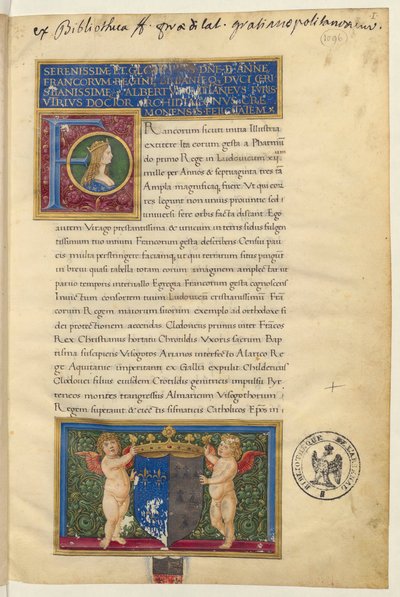 ex Bibliotheca ff. prædicat. gratianopolitanorum
I
(1096)
SERENISSIME ET DNE D ANNE
FRANCORVM REGINE DVCI
STIANISSIME ALBERT IVRIS
VTRIVS DOCTOR ARCHIDIACONVS CRE
MONENSIS
F Rancorum sicuti initia Illustria
extitere Ita eorum gesta a
do primo Rege in Ludovicum xij
mille per Annos & septuaginta tres
Ampla magnificaq fuere Ut qui eor
res legunt non unius provintie sed
universi fere orbis facta distant Ego
autem Virago prestantissima & unicum in terris fidus fulgen
tissimum tuo nutui Francorum gesta describens Censui pau
cis multa perstringere faciamq, ut qui terrarum situs pingut
in brevi quasi tabella totam eorum imaginem amplectar ut
parvo temporis intervallo Egregia Francorum gesta cognoscens
Invictum consortem tuum Ludovicum cristianissimum Fra
corum Regem maiorum suorum exemplo ad orthodoxe fi
dei protectionem accendas Clodoveus primus inter Fracos
Rex Christianus hortatu Chrotildis Uxoris sacrum Bap
tisma suscipiens Visogotos Arianos interfecto Alarico Re
ge Aquitanie imperitanti ex Gallia expulit Childeveus
Clodovei filius eiusdem Crotildis genitricis impulsu Pyr
teneos montes transgressus Almaricum Visogothorum
Regem superavit & eiectis sismaticis Catholicos Epos in
BIBLIOTHEQUE DE L'ARSENAL